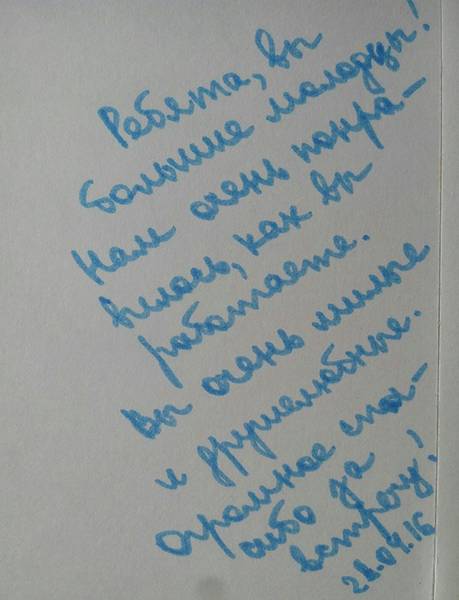 Ребята, вы
большие молодцы!
Нам очень понра-
вилось, как вы
работаете.
Вы очень милые
и дружелюбные.
Огромное спа-
сибо за
встречу!
28.04.16